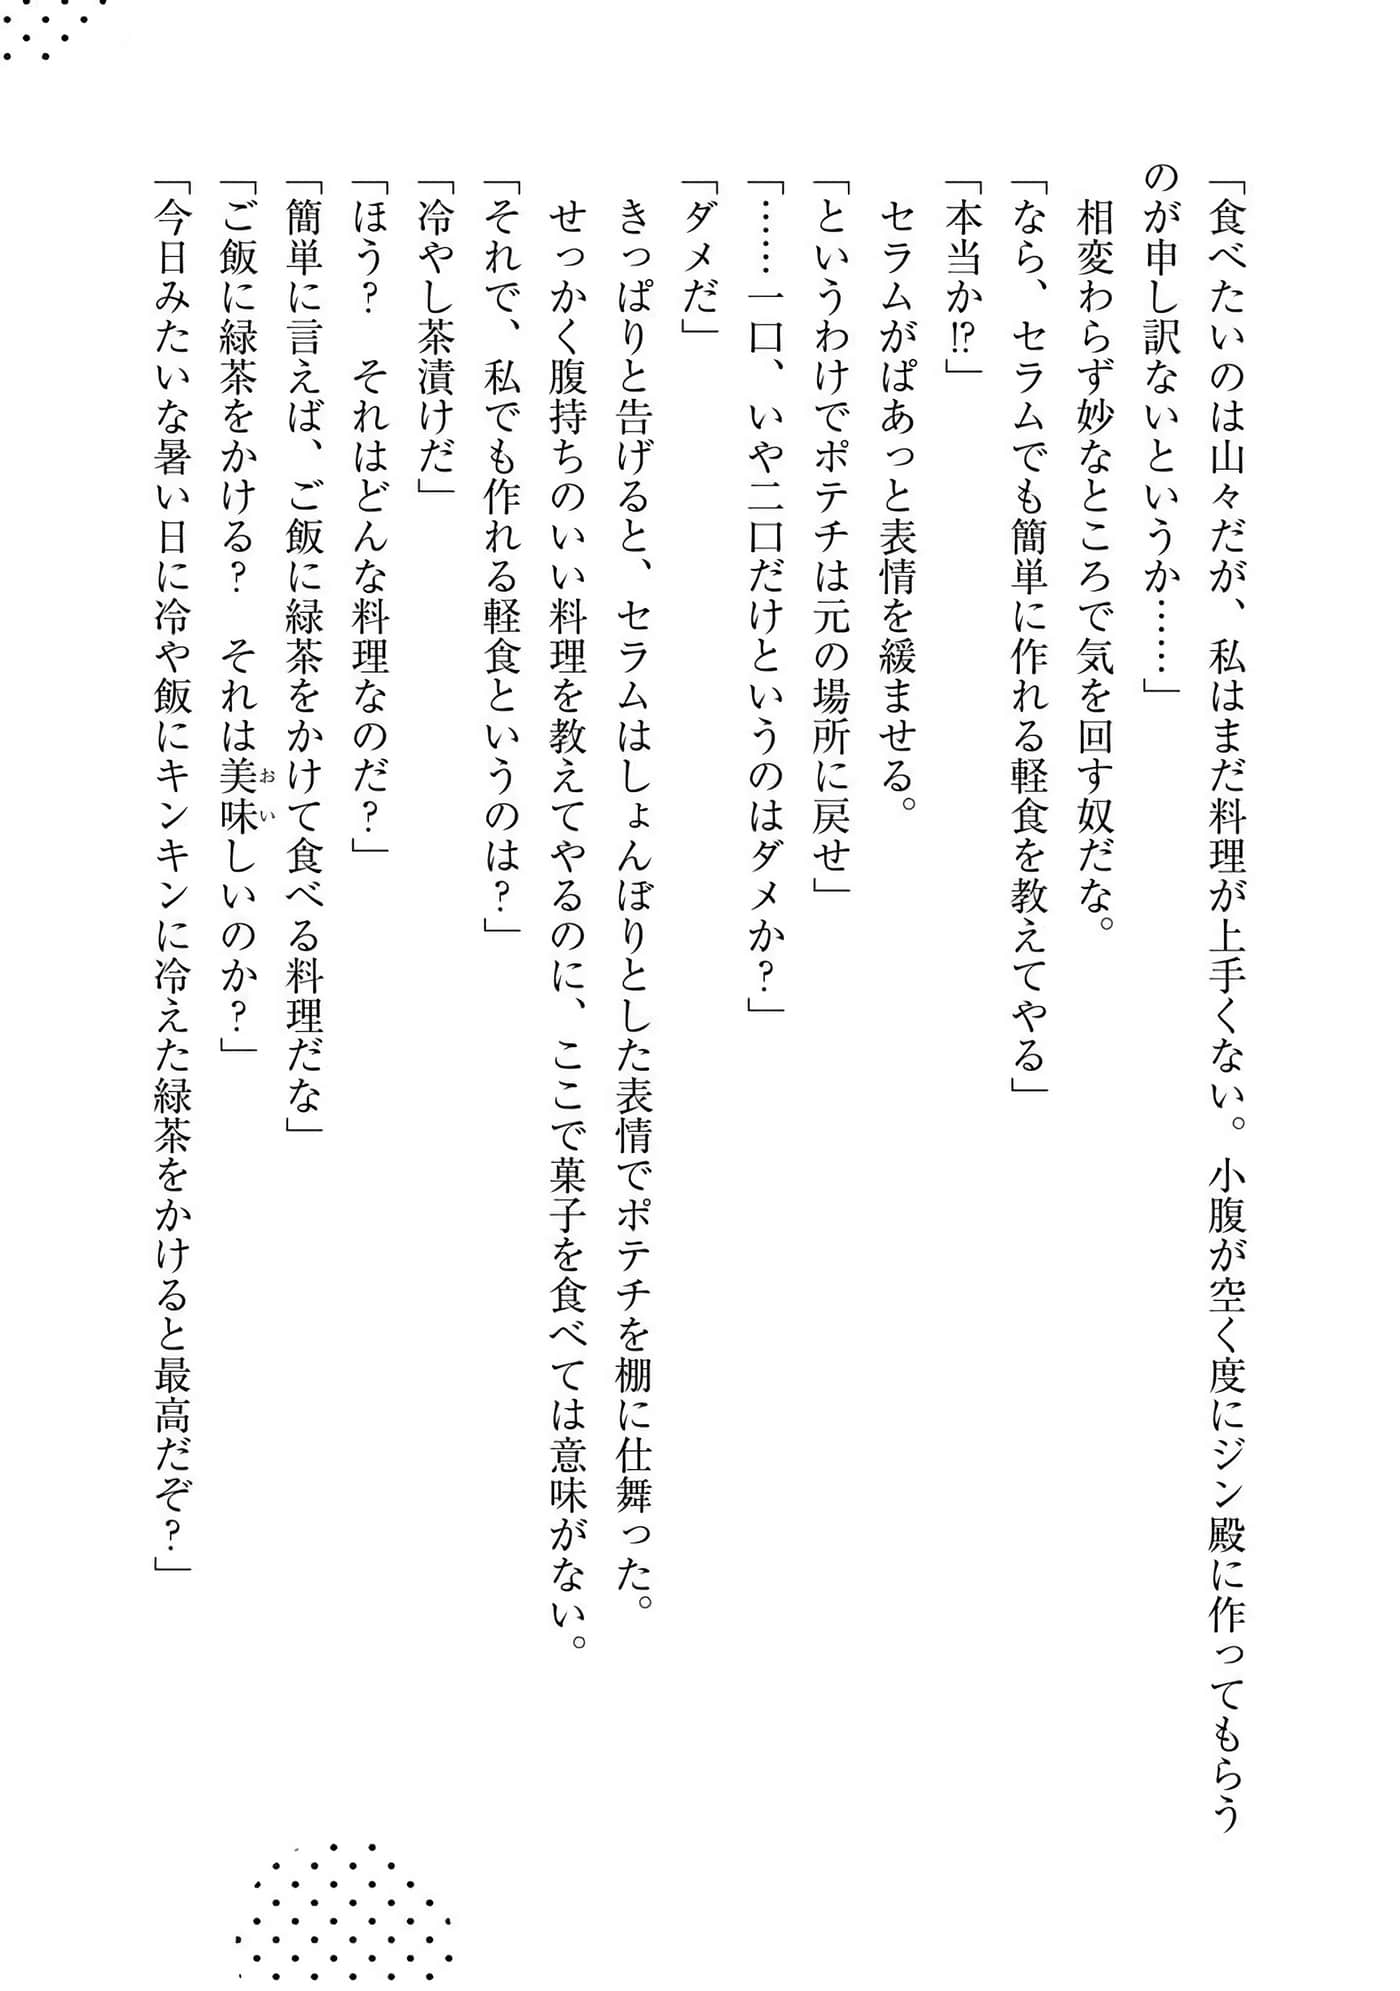 「食べたいのは山々だが、私はまだ料理が上手くない。小腹が空く度にジン殿に作ってもらう
のが申し訳ないというか……」
　相変わらず妙なところで気を回す奴だな。
「なら、セラムでも簡単に作れる軽食を教えてやる」
「本当か!?」
　セラムがぱあっと表情を緩ませる。
「というわけでポテチは元の場所に戻せ」
「……一口、いや二口だけというのはダメか？」
「ダメだ」
　きっぱりと告げると、セラムはしょんぼりとした表情でポテチを棚に仕舞った。
　せっかく腹持ちのいい料理を教えてやるのに、ここで菓子を食べては意味がない。
「それで、私でも作れる軽食というのは？」
「冷やし茶漬けだ」
「ほう？　それはどんな料理なのだ？」
「簡単に言えば、ご飯に緑茶をかけて食べる料理だな」
「ご飯に緑茶をかける？　それは美味おいしいのか？」
「今日みたいな暑い日に冷や飯にキンキンに冷えた緑茶をかけると最高だぞ？」